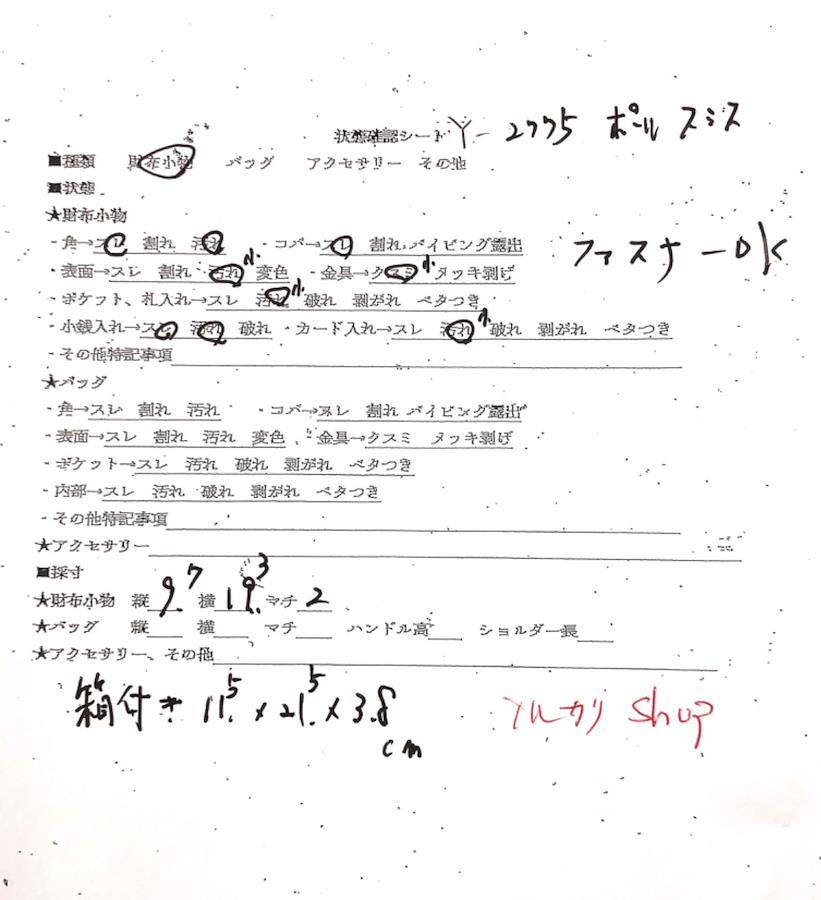 状態確認シート Y-2775 ポール スミス
■種類 財布小物 バッグ アクセサリー その他
■状態
★財布小物
・角→スレ 割れ 汚れ ・コバ→スレ 割れ パイピング露出
ファスナーOK
・表面→スレ 割れ 汚れ小 変色 ・金具→クスミ小 メッキ剥げ
・ポケット、札入れ→スレ 汚れ小 破れ 剥がれ ベタつき
・小銭入れ→スレ 汚れ 破れ ・カード入れ→スレ 汚れ小 破れ 剥がれ ベタつき
・その他特記事項
★バッグ
・角→スレ 割れ 汚れ ・コバ→スレ 割れ パイピング露出
・表面→スレ 割れ 汚れ 変色 ・金具→クスミ メッキ剥げ
・ポケット→スレ 汚れ 破れ 剥がれ ベタつき
・内部→スレ 汚れ 破れ 剥がれ ベタつき
・その他特記事項
★アクセサリー
■採寸
★財布小物 縦 9.7 横 19.3 マチ 2
★バッグ 縦 横 マチ ハンドル高 ショルダー長
★アクセサリー、その他
箱付* 11.5 x 21.5 x 3.8
cm
メルカリ Shop